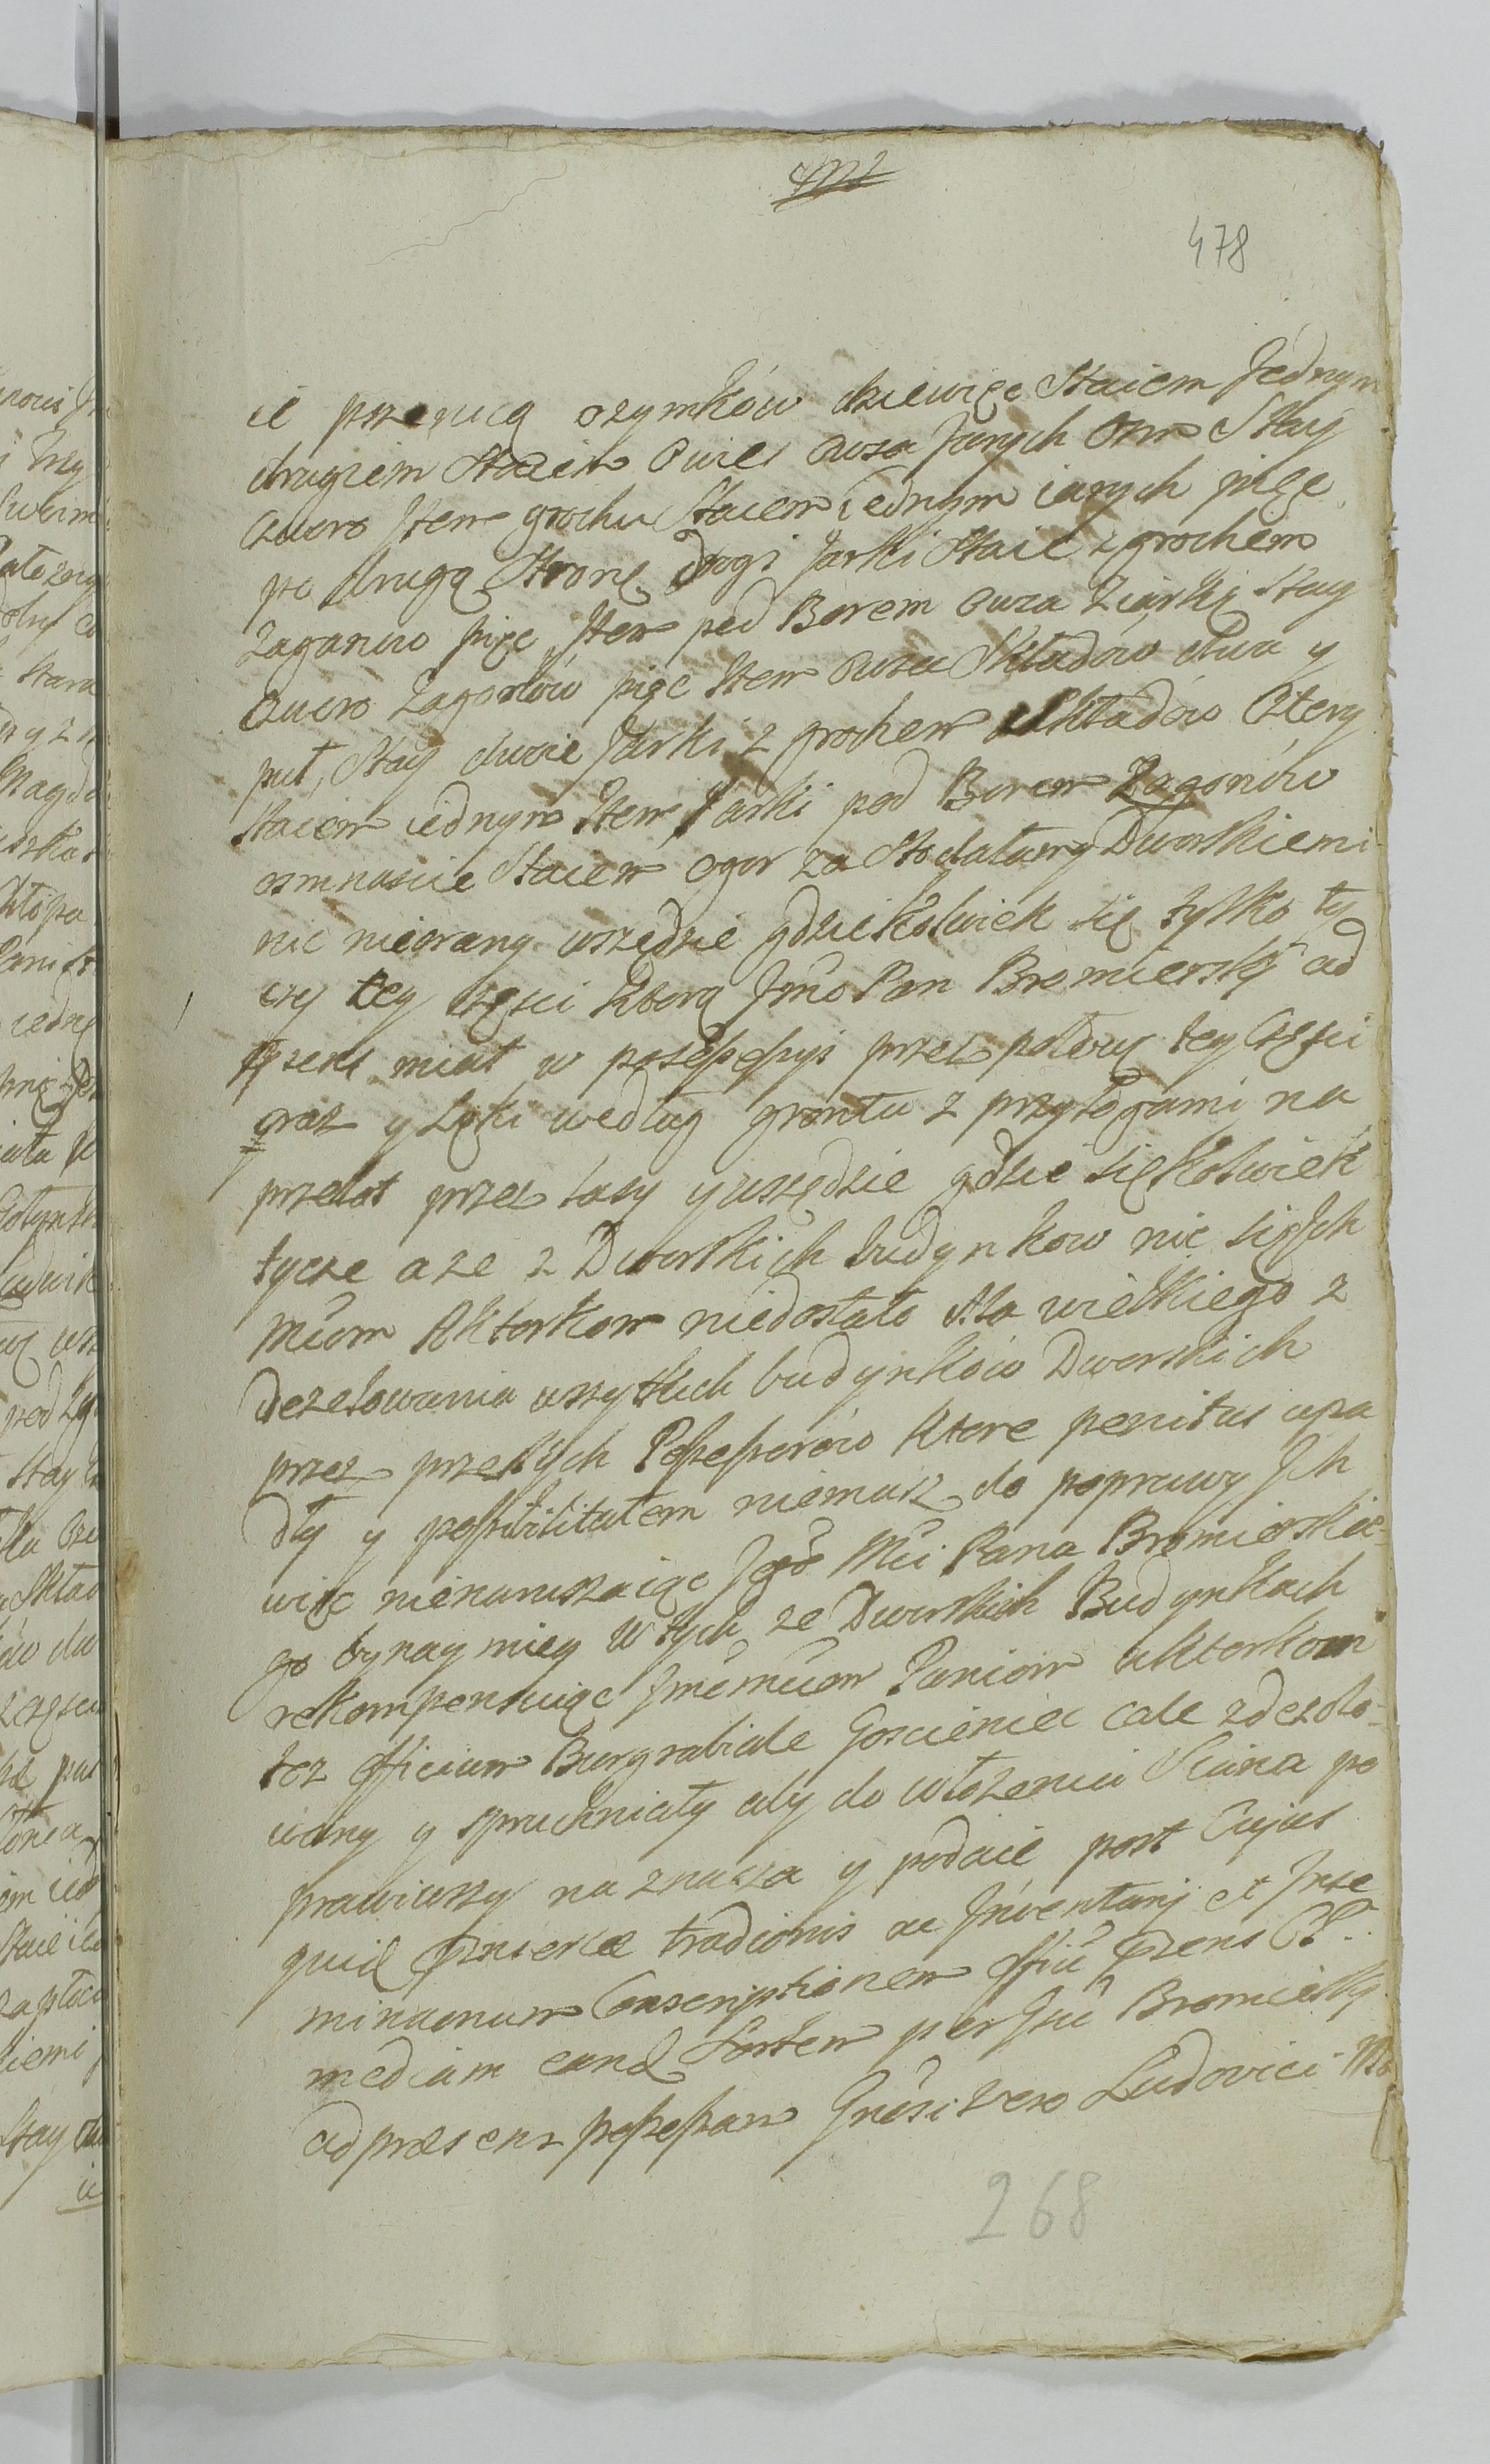 478
ie pszenicą ozymków dziewięc Staiem Jednym
drugiem Staiem Owies owsa Jarych osm Staÿ
Czworo Item grochu Staiem iednym iarych pięc
po drugą Stronę drogi Jarki Staie z grochem
Zagonow pięc Item pod Borem owsa Ziarki Stay
Czworo Zagonów pięc Item owsa Składów dwa y
puł, Stay dwoie Jarki z grochem Składów Cztery
Staiem iednym Item Jarki pod Borem Zagonów
osmnascie Staiem ogor za Stodołamy Dworskiemi
nic nieorany wszędzie gdziekolwiek się tylko ty
czy tey częsci ktorą Jmo Pan Bromierskÿ ad
pzens miał w possessyi przez połowę tey Częsci
oraz y Łąki według gruntu z przyłogami na
przelot przez lasy y wszędzie gdzie siękolwiek
tycze a ze z Dworskich budynkow nic się Ich
Mciom Aktorkom niedostało dla wielkiego z
dezelowania wszytkich budynków Dworskich
przez przeszłych Possessorów ktore penitus upa
dły y possibilitatem niemasz do poprawy Ich
więc nienaruszaiąc Jego Mci Pana Bromierskie-
go bynaymniey w tych ze Dworskich Budynkach
rekompensuiąc Jmomciom Paniom aktorkom
toz officium Burgrabiale Gosciniec cale zdezolo-
wany y spruchniały aby do włozenia Siana po
prawiwszy naznacza y podaie post Cujus
quid pmissae traditionis ac Inventarij et Inse
minaonum Conscriptionem offiu pzens Ct..
mediam eand Sortem per Jsu Bromierskÿ
ad praesens possessam Gnosi vero Ludovici Mo
268